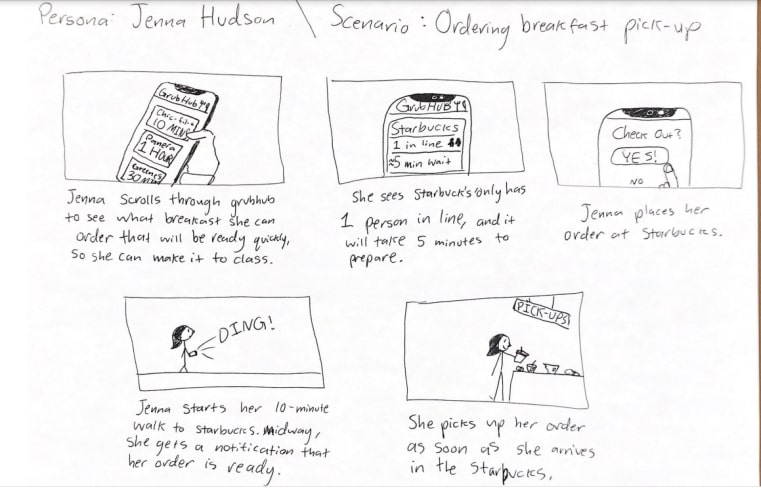 Persona: Jenna Hudson \ Scenario: Ordering breakfast pick-up
GrubHub
Chic-fil-a
10 MINS
Panera
1 HOUR
Greenes
30 MIN
Jenna Scrolls through grubhub
to see what breakast she can
order that will be ready quickly,
So she can make it to class.
GrubHUB
Starbucks
1 in line
≈5 min wait
She sees Starbuck's only has
1 person in line, and it
will take 5 minutes to
prepare.
Check Out?
YES!
NO
Jenna places her
order at Starbucks.
DING!
Jenna starts her 10-minute
walk to Starbucks. Midway,
she gets a notification that
her order is ready.
PICK-UPS!
She picks up her order
as soon as she arrives
in the Starbucks.